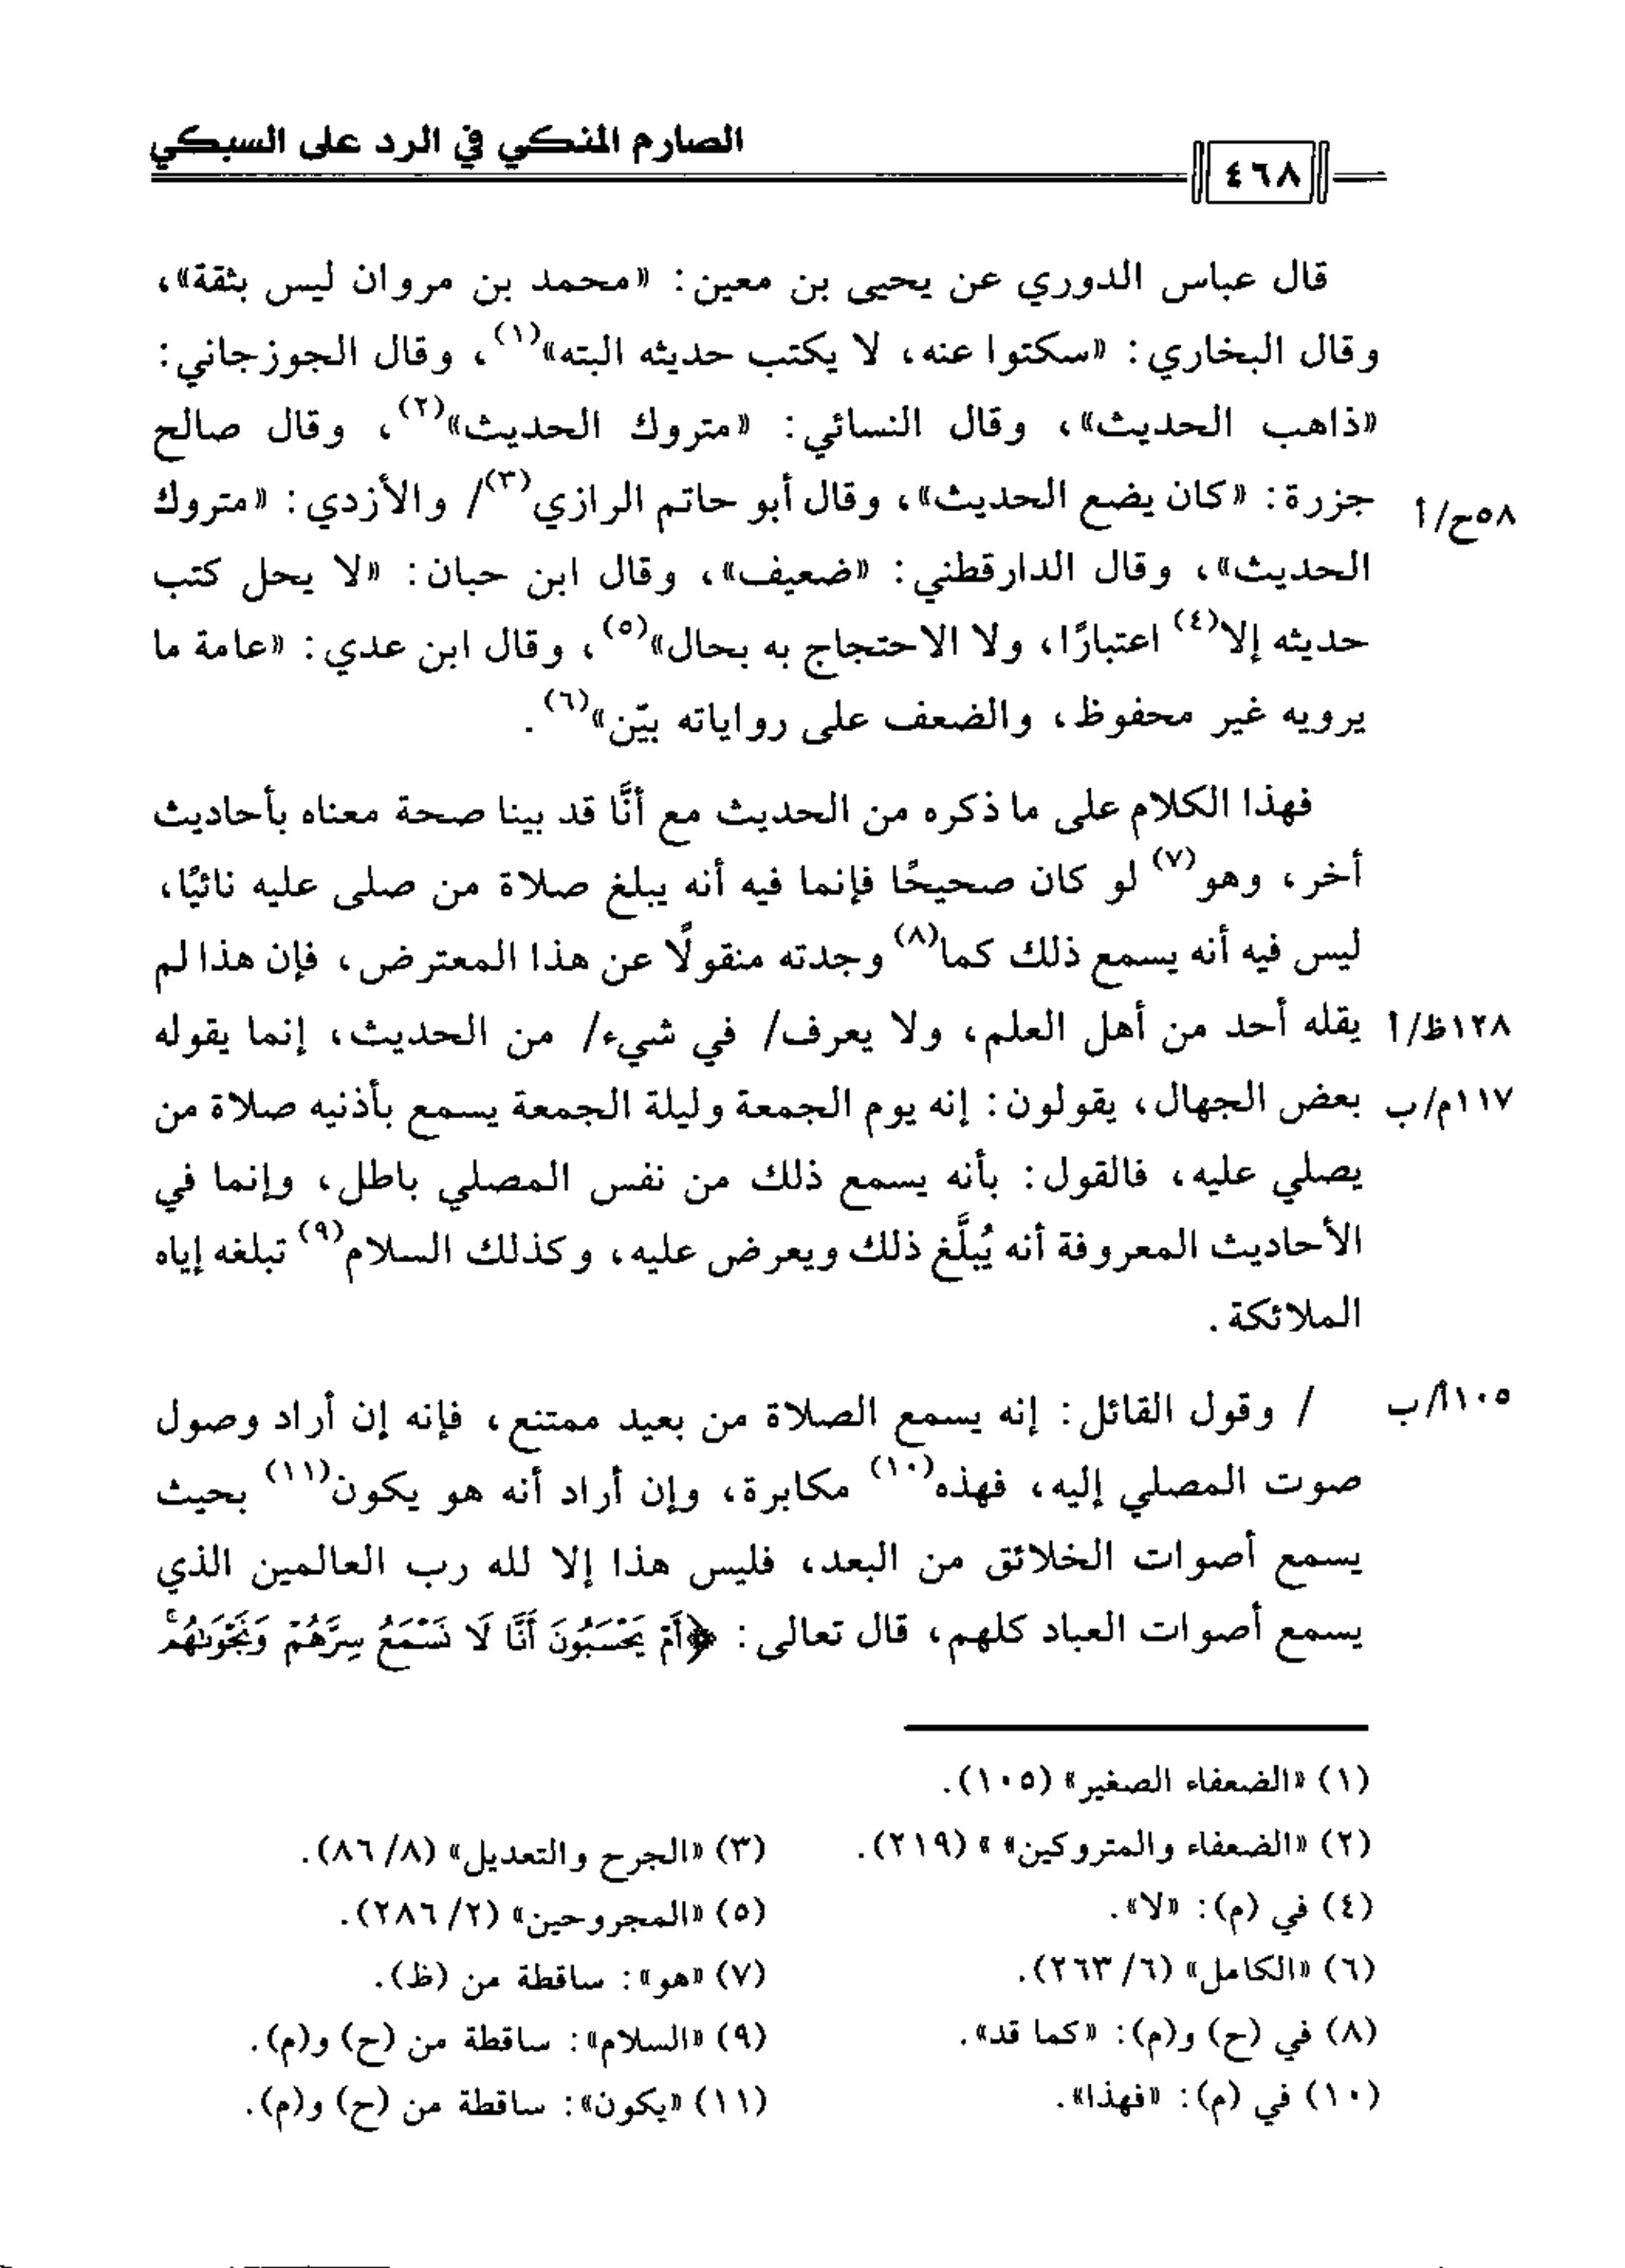 الصارم المنكي في الرد على السبكي
٤٦٨
قال عباس الدوري عن يحيى بن معين: «محمد بن مروان ليس بثقة»،
وقال البخاري: «سكتوا عنه، لا يكتب حديثه البته»(١)، وقال الجوزجاني:
«ذاهب الحديث»، وقال النسائي: «متروك الحديث»(٢)، وقال صالح
جزرة: «كان يضع الحديث»، وقال أبو حاتم الرازي(٣)/ والأزدي: «متروك
٥٨ح/أ
الحديث»، وقال الدارقطني: «ضعيف»، وقال ابن حبان: «لا يحل كتب
حديثه إلا(٤) اعتبارًا، ولا الاحتجاج به بحال»(٥)، وقال ابن عدي: «عامة ما
يرويه غير محفوظ، والضعف على رواياته بيّن»(٦).
فهذا الكلام على ما ذكره من الحديث مع أنَّا قد بينا صحة معناه بأحاديث
أخر، وهو(٧) لو كان صحيحًا فإنما فيه أنه يبلغ صلاة من صلى عليه نائيًا،
ليس فيه أنه يسمع ذلك كما(٨) وجدته منقولًا عن هذا المعترض، فإن هذا لم
يقله أحد من أهل العلم، ولا يعرف/ في شيء/ من الحديث، إنما يقوله
١٢٨ظ/أ
بعض الجهال، يقولون: إنه يوم الجمعة وليلة الجمعة يسمع بأذنيه صلاة من
١١٧م/ب
يصلي عليه، فالقول: بأنه يسمع ذلك من نفس المصلي باطل، وإنما في
الأحاديث المعروفة أنه يُبلَّغ ذلك ويعرض عليه، وكذلك السلام(٩) تبلغه إياه
الملائكة.
/ وقول القائل: إنه يسمع الصلاة من بعيد ممتنع، فإنه إن أراد وصول
١٠٥أ/ب
صوت المصلي إليه، فهذه(١٠) مكابرة، وإن أراد أنه هو يكون(١١) بحيث
يسمع أصوات الخلائق من البعد، فليس هذا إلا لله رب العالمين الذي
يسمع أصوات العباد كلهم، قال تعالى: ﴿أَمْ يَحْسَبُونَ أَنَّا لَا نَسْمَعُ سِرَّهُمْ وَنَجْوَىٰهُمۚ
(١) «الضعفاء الصغير» (١٠٥).
(٢) «الضعفاء والمتروكين» » (٢١٩).
(٣) «الجرح والتعديل» (٨/ ٨٦).
(٤) في (م): «لا».
(٥) «المجروحين» (٢/ ٢٨٦).
(٦) «الكامل» (٦/ ٢٦٣).
(٧) «هو»: ساقطة من (ظ).
(٨) في (ح) و(م): «كما قد».
(٩) «السلام»: ساقطة من (ح) و(م).
(١٠) في (م): «فهذا».
(١١) «يكون»: ساقطة من (ح) و(م).